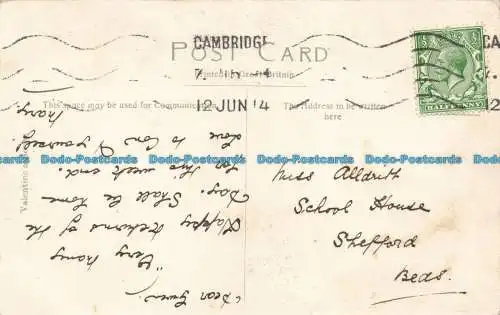 CAMBRIDGE
POST CARD
Printed in Great Britain
12 JUN 14
This space may be used for Communication
The Address to be written
here
HALFPENNY
Valentine
Dear Gwen,
"Very many
Happy Returns of the
Day. Shall be home
for this week end.
Love to Con & yourself
Mary.
Miss Alldritt
School House
Shefford
Beds.
Dodo-Postcards Dodo-Postcards Dodo-Postcards Dodo-Postcards Dodo-Postcards